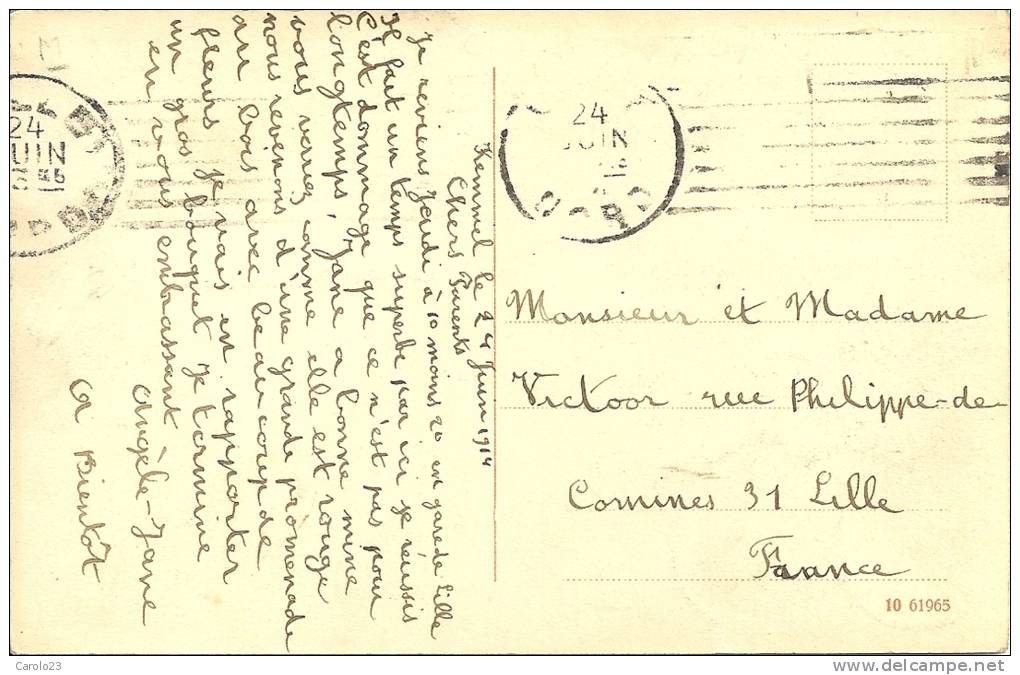 Kemmel le 24 Juin 1914
Chers Parents
Je reviens Jeudi à 10 moins 20 en gare de Lille
Il fait un temps superbe par ici je réussis
C'est dommage que ce n'est pas pour
longtemps, Jane a bonne mine
vous verrez comme elle est rouge
nous revenons d'une grande promenade
au bois avec beaucoup de
fleurs je vais en rapporter
un gros bouquet je termine
en vous embrassant
Angèle-Jane
A Bientôt
24
JUIN
24
JUIN
NORD
Monsieur et Madame
Victoor rue Philippe-de-
Comines 31 Lille
France
10 61965
Carolo23
delcampe.net